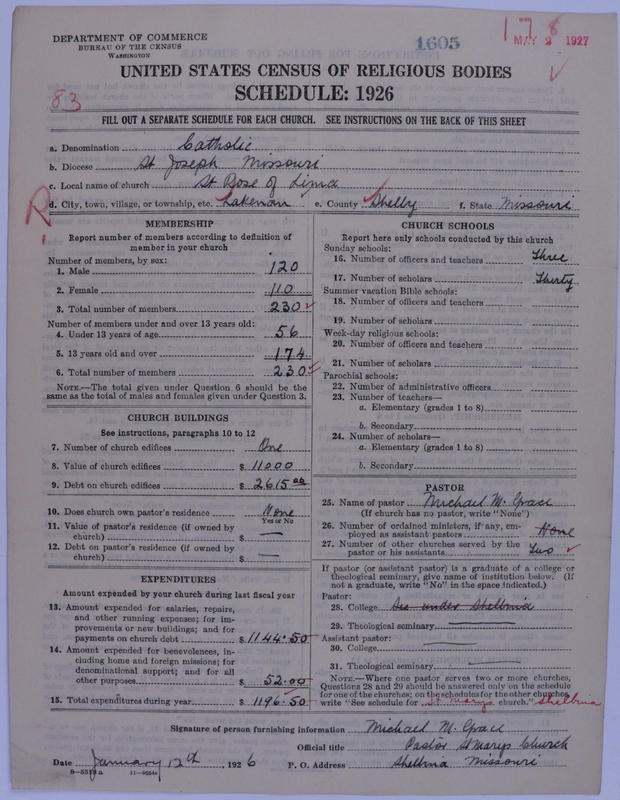 DEPARTMENT OF COMMERCE
BUREAU OF THE CENSUS
WASHINGTON
1605
178
MAY 2 1927
UNITED STATES CENSUS OF RELIGIOUS BODIES
SCHEDULE: 1926
83
FILL OUT A SEPARATE SCHEDULE FOR EACH CHURCH. SEE INSTRUCTIONS ON THE BACK OF THIS SHEET
a. Denomination Catholic
b. Diocese St Joseph Missouri
c. Local name of church St Rose of Lima
R
d. City, town, village, or township, etc. Lakeman e. County Shelby f. State Missouri
MEMBERSHIP
Report number of members according to definition of
member in your church
Number of members, by sex:
1. Male 120
2. Female 110
3. Total number of members 230
Number of members under and over 13 years old:
4. Under 13 years of age 56
5. 13 years old and over 174
6. Total number of members 230
NOTE.—The total given under Question 6 should be the
same as the total of males and females given under Question 3.
CHURCH BUILDINGS
See instructions, paragraphs 10 to 12
7. Number of church edifices One
8. Value of church edifices $ 11000
9. Debt on church edifices $ 2615.00
10. Does church own pastor's residence None
Yes or No
11. Value of pastor's residence (if owned by
church) $ —
12. Debt on pastor's residence (if owned by
church) $ —
EXPENDITURES
Amount expended by your church during last fiscal year
13. Amount expended for salaries, repairs,
and other running expenses; for im-
provements or new buildings; and for
payments on church debt $ 1144.50
14. Amount expended for benevolences, in-
cluding home and foreign missions; for
denominational support; and for all
other purposes $ 52.00
15. Total expenditures during year $ 1196.50
CHURCH SCHOOLS
Report here only schools conducted by this church
Sunday schools:
16. Number of officers and teachers Three
17. Number of scholars Thirty
Summer vacation Bible schools:
18. Number of officers and teachers
19. Number of scholars
Week-day religious schools:
20. Number of officers and teachers
21. Number of scholars
Parochial schools:
22. Number of administrative officers
23. Number of teachers—
a. Elementary (grades 1 to 8)
b. Secondary
24. Number of scholars—
a. Elementary (grades 1 to 8)
b. Secondary
PASTOR
25. Name of pastor Michael M. Grace
(If church has no pastor, write "None")
26. Number of ordained ministers, if any, em-
ployed as assistant pastors None
27. Number of other churches served by the
pastor or his assistants Two
If pastor (or assistant pastor) is a graduate of a college or
theological seminary, give name of institution below. (If
not a graduate, write "No" in the space indicated.)
Pastor:
28. College See under Shelbina
29. Theological seminary
Assistant pastor:
30. College
31. Theological seminary
NOTE.—Where one pastor serves two or more churches,
Questions 28 and 29 should be answered only on the schedule
for one of the churches; on the schedules for the other churches,
write "See schedule for St Marys church." Shelbina
Signature of person furnishing information Michael M. Grace
Official title Pastor St Marys Church
Date January 12th, 1926 P. O. Address Shelbina Missouri
8—5513a 11—9254a